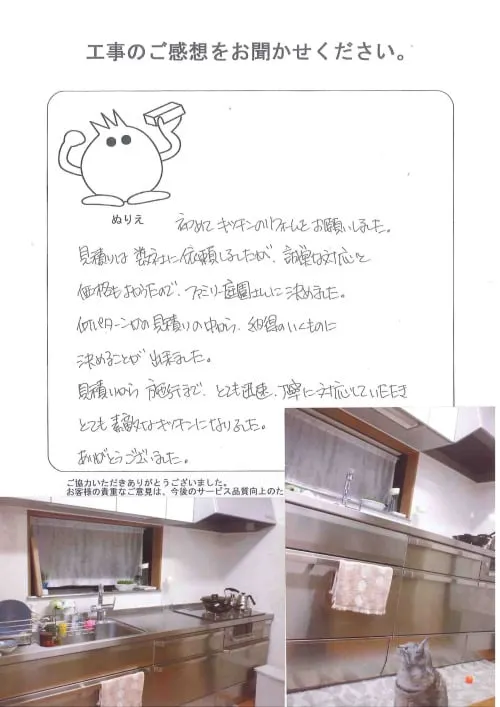 工事のご感想をお聞かせください。
ぬりえ
初めてキッチンのリフォームをお願いしました。
見積りは数社に依頼しましたが、誠実な対応と
価格もよかったので、ファミリー庭園さんに決めました。
何パターンかの見積りの中から、納得のいくものに
決めることが出来ました。
見積りから施行まで、とても迅速、丁寧に対応していただき
とても素敵なキッチンになりました。
ありがとうございました。
ご協力いただきありがとうございました。
お客様の貴重なご意見は、今後のサービス品質向上のた